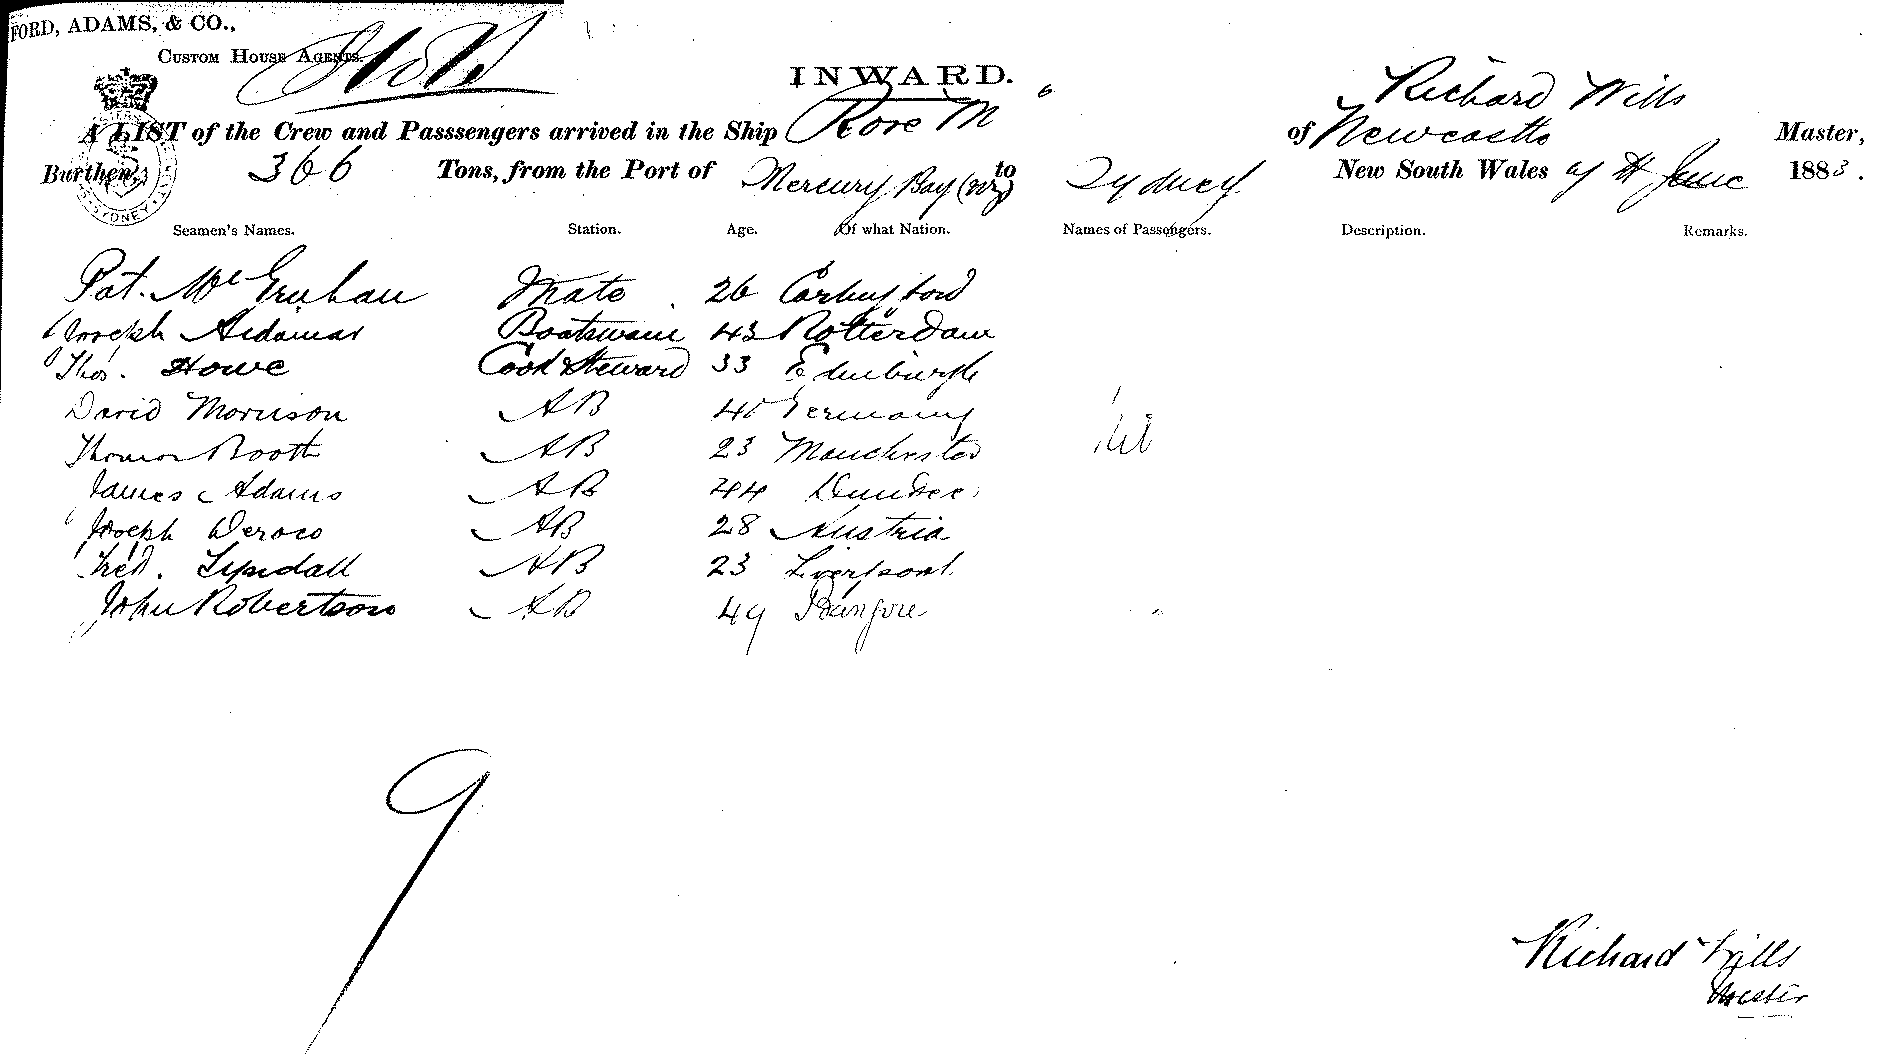 FORD, ADAMS, & CO.,
CUSTOM HOUSE AGENTS.
INWARD.
Richard Wills
A LIST of the Crew and Passsengers arrived in the Ship Rose M of Newcastle Master,
Burthen, 366 Tons, from the Port of Mercury Bay (NZ) to Sydney New South Wales June 1883.
SYDNEY
Seamen's Names. Station. Age. Of what Nation. Names of Passengers. Description. Remarks.
Pat. Mate 26 Carlingford
Joseph Boatswain 43 Rotterdam
Thos. Howe Cook & Steward 33 Edinburgh
David Morrison AB 45 Germany
Thomas Booth AB 23 Manchester
James Adams AB 44 Dundee
Joseph AB 28 Austria
Fred. Lyndall AB 23 Liverpool
John Robertson AB 49
9
Richard Wills
Master